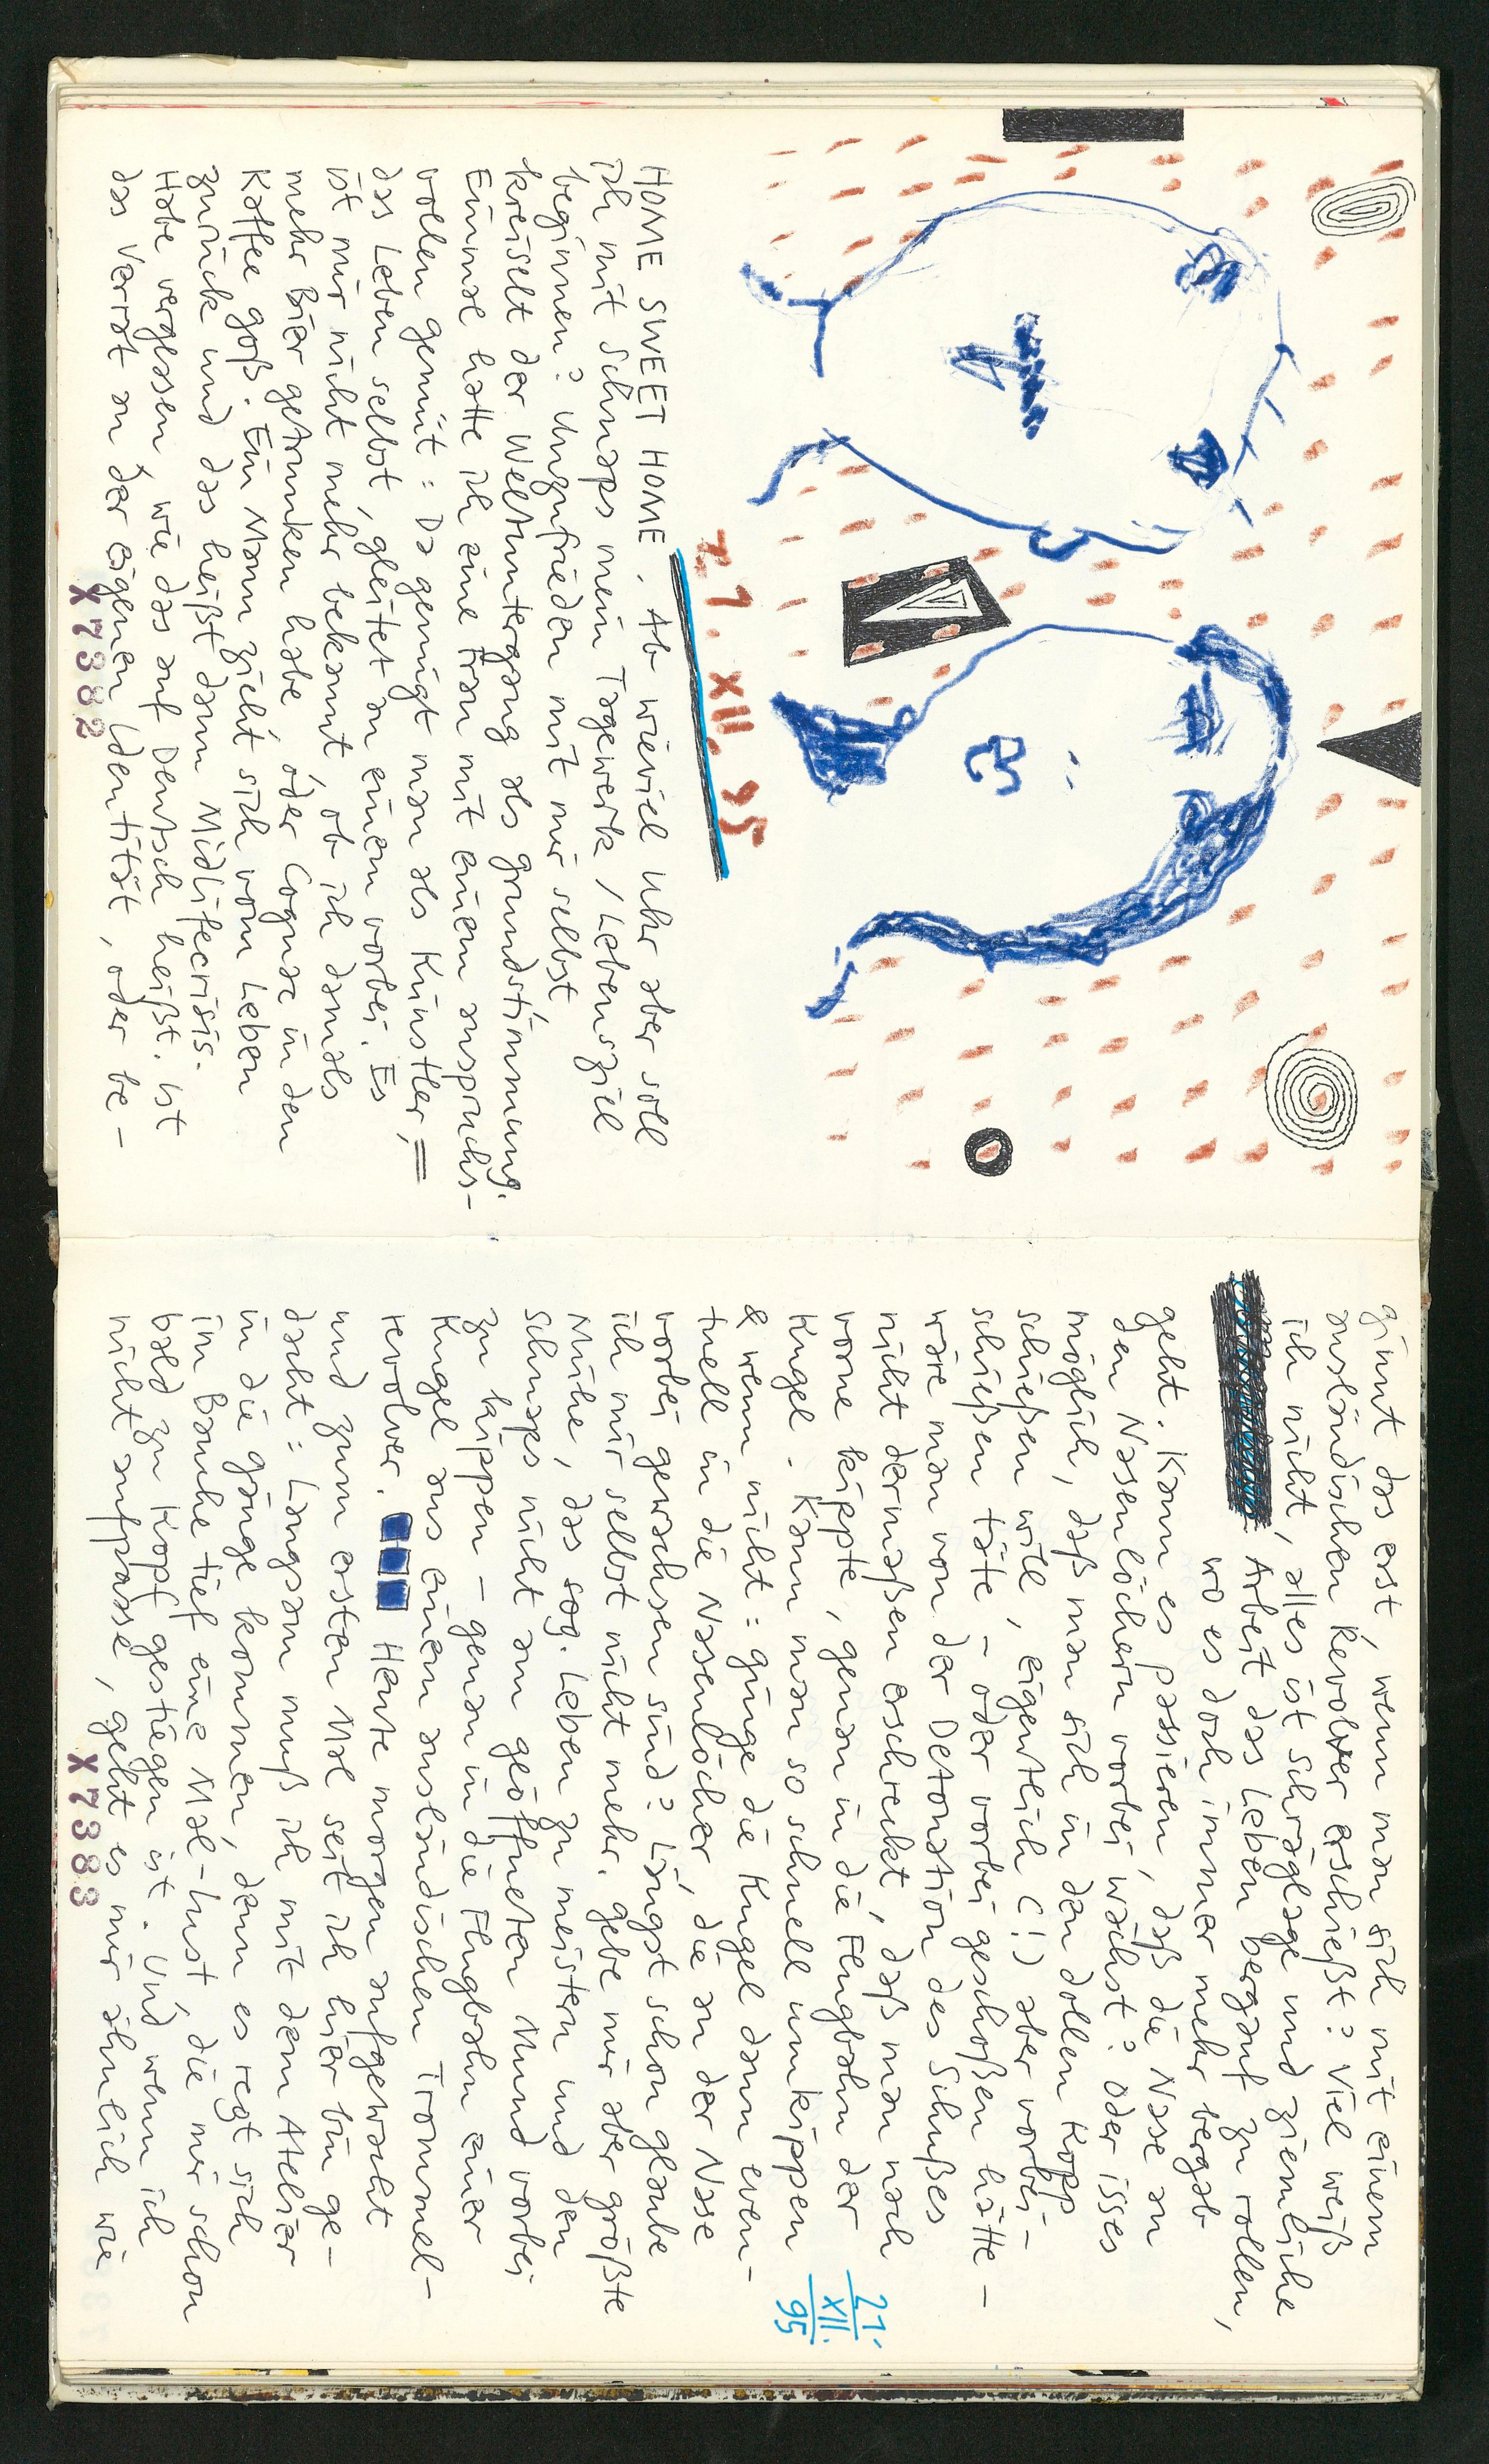 21. XII. 95
HOME SWEET HOME. Ab wieviel Uhr aber soll
ich mit Schnaps mein Tagewerk / Lebensziel
beginnen? Unzufrieden mit mir selbst
kreiselt der Weltuntergang als Grundstimmung.
Einmal hatte ich eine Frau mit einem anspruchs-
vollen gemüt: Da genügt man als Künstler, =
das Leben selbst, gleitet an einem vorbei. Es
ist mir nicht mehr bekannt, ob ich damals
mehr Bier getrunken habe, oder Cognac in den
Kaffee goß. Ein Mann zieht sich vom Leben
zurück und das heißt dann Midlifecrisis.
Habe vergessen, wie das auf Deutsch heißt. Ist
das Verrat an der eigenen Identität, oder be-
X7382
ginnt das erst, wenn man sich mit einem
ausländischen Revolver erschießt? Viel weiß
ich nicht, alles ist schräglage und ziemliche
Arbeit das Leben bergauf zu rollen,
wo es doch immer mehr bergab
geht. Kann es passieren, daß die Nase an
den Nasenlöchern vorbei wächst? Oder isses
möglich, daß man sich in den dollen Kopp
schießen will, eigentlich (!) aber vorbei-
schießen täte – oder vorbei geschoßen hätte –
wäre man von der Detonation des Schußes
nicht dermaßen erschreckt, daß man nach
vorne kippte, genau in die Flugbahn der
Kugel. Kann man so schnell umkippen
& wenn nicht: ginge die Kugel dann even-
tuell in die Nasenlöcher, die an der Nase
vorbei gewachsen sind? Längst schon glaube
ich mir selbst nicht mehr, gebe mir aber größte
Mühe, das sog. Leben zu meistern und den
Schnaps nicht am geöffneten Mund vorbei
zu kippen – genau in die Flugbahn einer
Kugel aus einem ausländischen Trommel-
revolver. Heute morgen aufgewacht
und zum ersten Mal seit ich hier bin ge-
dacht: Langsam muß ich mit dem Atelier
in die gänge kommen, denn es regt sich
im Bauche tief eine Mal-Lust, die mir schon
bald zu Kopf gestiegen ist. Und wenn ich
nicht aufpasse, geht es mir ähnlich wie
21.
XII.
95
X7383